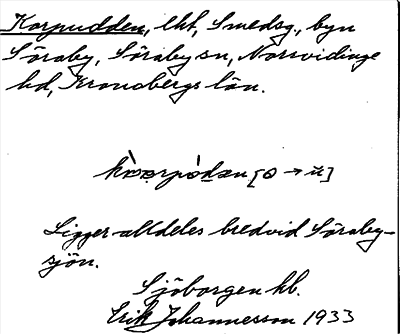 Korpudden, lht, Smedsg., byn
Söraby, Söraby sn, Norrvidinge
hd, Kronobergs län.
[ɵ → ŭ]
Ligger alldeles bredvid Söraby-
sjön.
Sjöborgen hb.
Erik Johannesson 1933